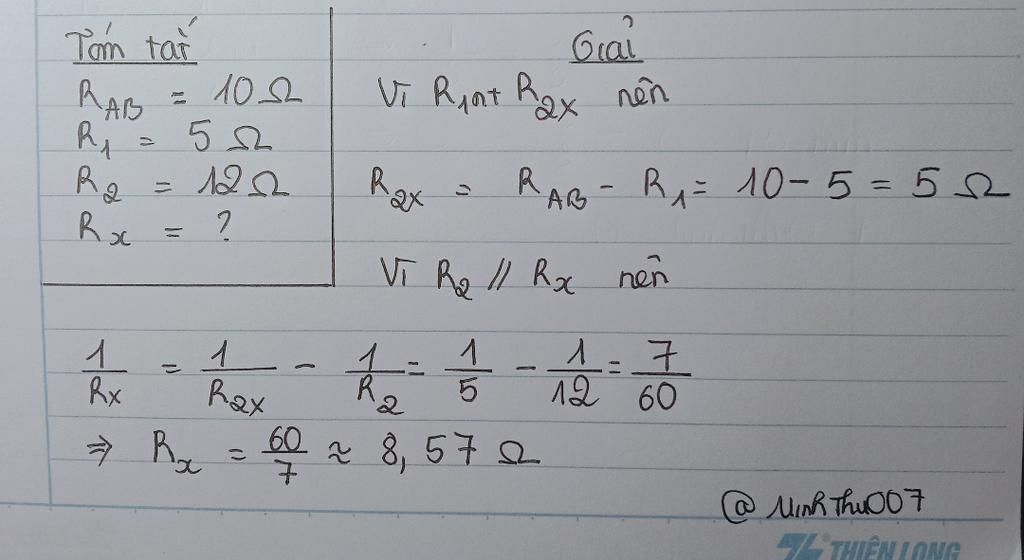 Tóm tắt
R_AB = 10 Ω
R_1 = 5 Ω
R_2 = 12 Ω
R_x = ?
Giải
Vì R_1 nt R_2x nên
R_2x = R_AB - R_1 = 10 - 5 = 5 Ω
Vì R_2 // R_x nên
1/R_x = 1/R_2x - 1/R_2 = 1/5 - 1/12 = 7/60
⇒ R_x = 60/7 ≈ 8,57 Ω
@MinhThu007
THIÊN LONG